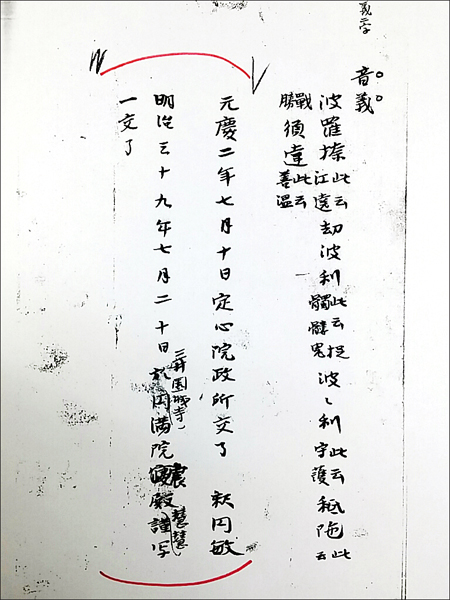 音義
波羅捺此云江遠劫波利此云捉髑髏鬼波〻利此云守護秖陁此云
戰勝須達此云善温
元慶二年七月十日定心院政所交了 釈円敏
三井園城寺
明治三十九年七月二十日於円満院寝殿謹写
一交了